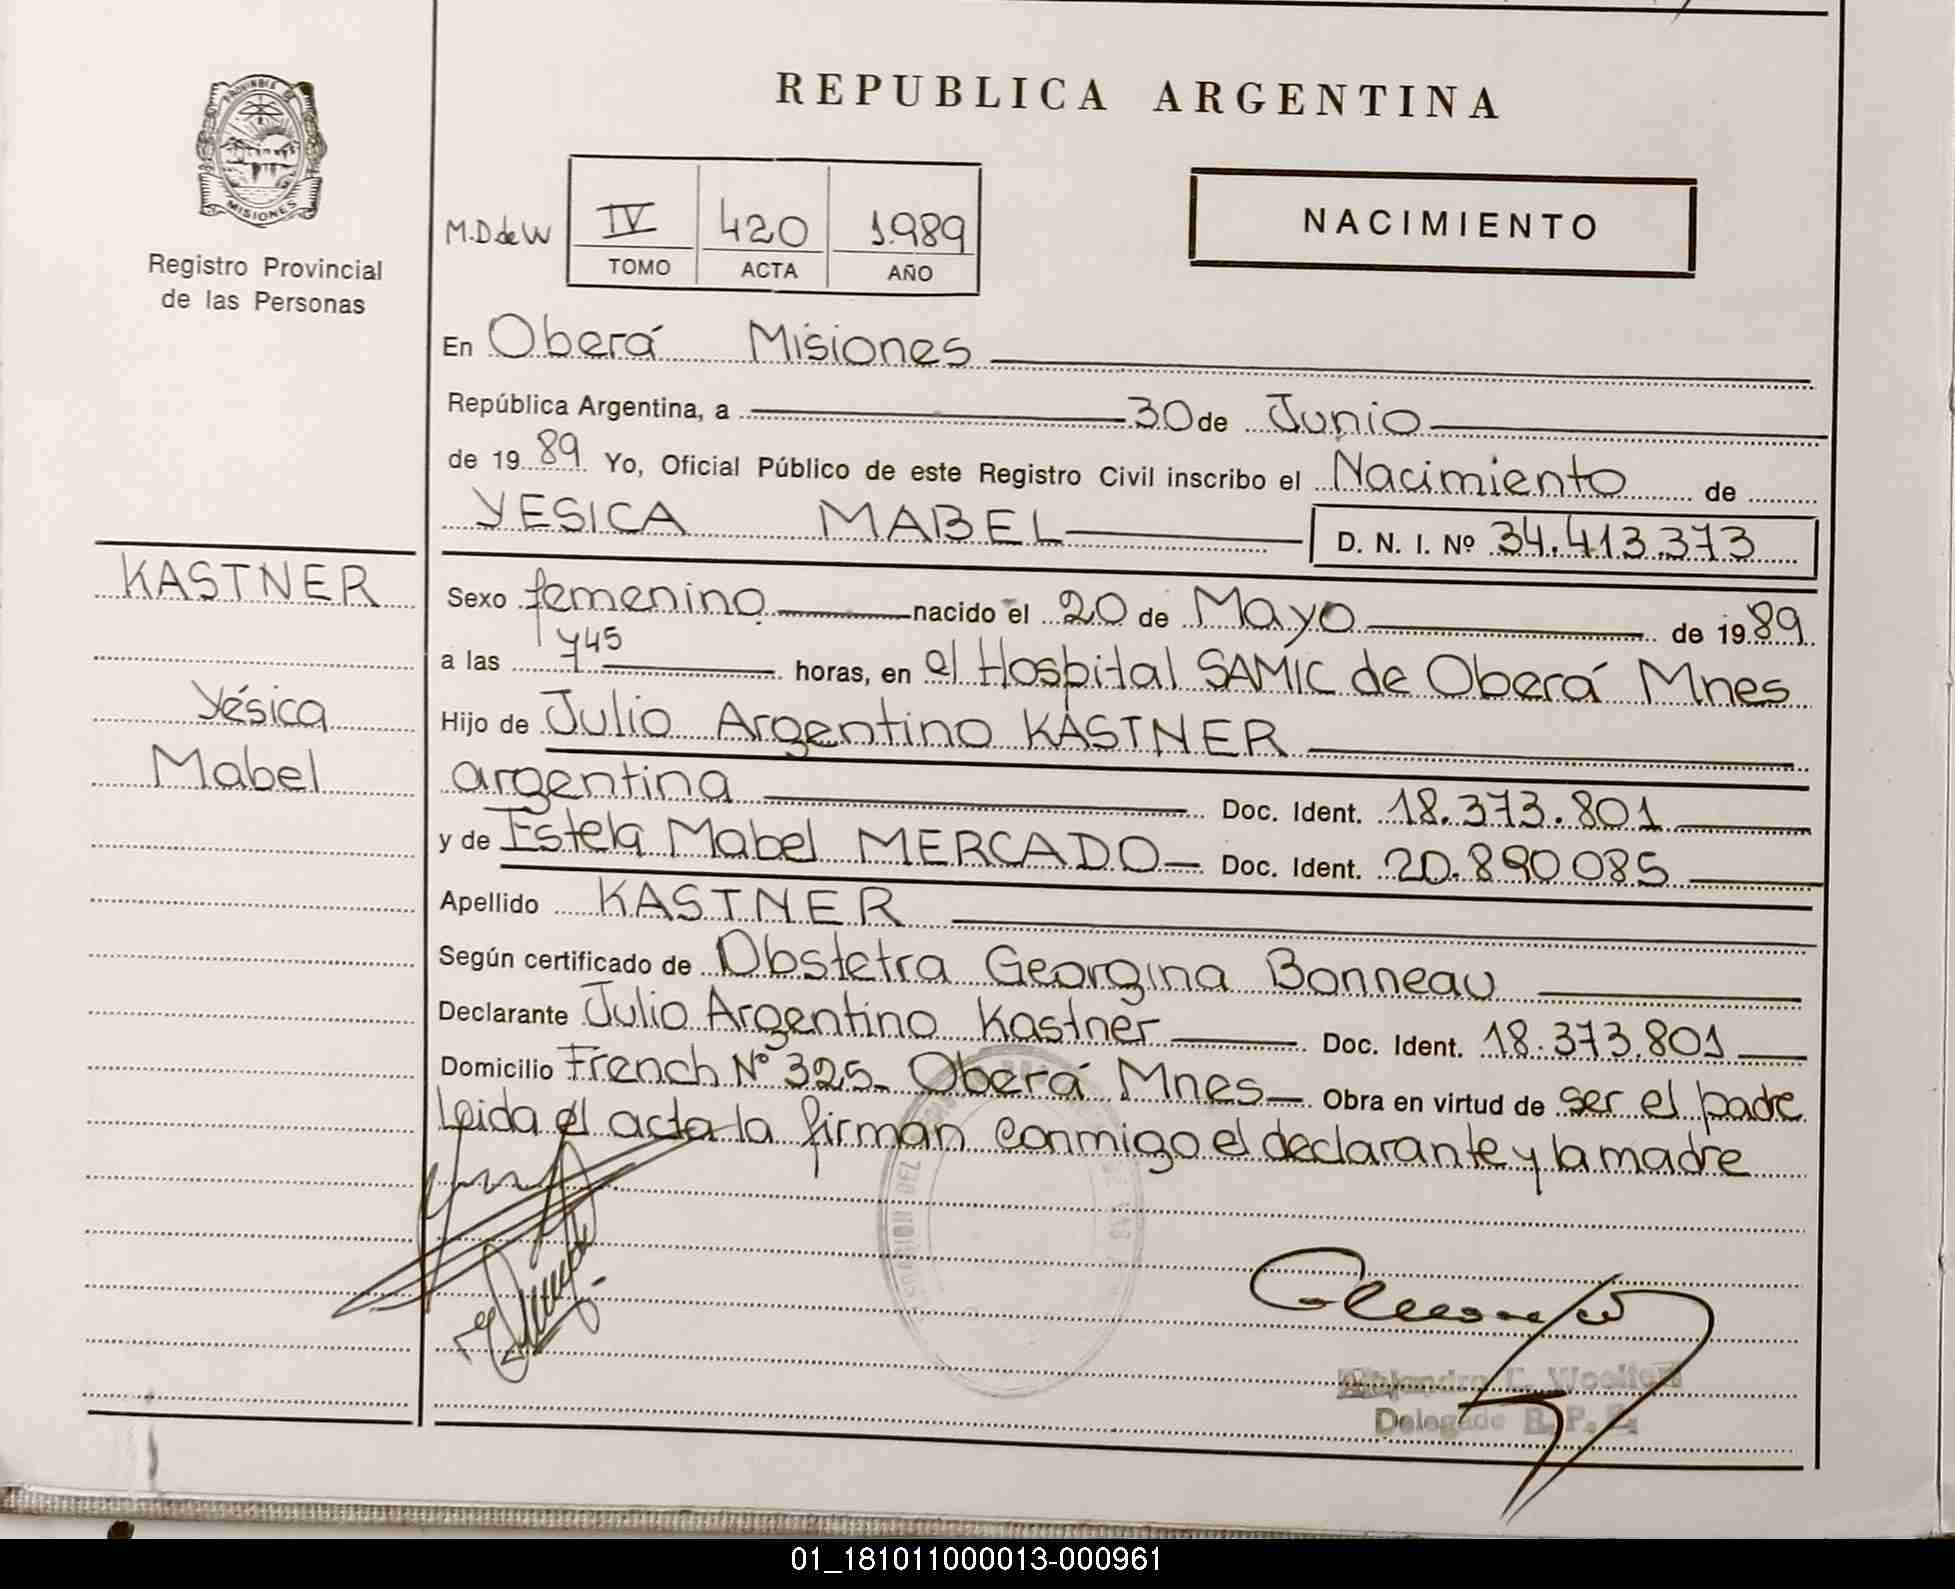 REPUBLICA ARGENTINA
PROVINCIA DE
MISIONES
Registro Provincial
de las Personas
M.D.deW
IV 420 1.989
TOMO ACTA AÑO
NACIMIENTO
En Oberá Misiones
República Argentina, a 30 de Junio
de 1989 Yo, Oficial Público de este Registro Civil inscribo el Nacimiento de
YESICA MABEL D. N. I. Nº 34.413.373
KASTNER
Yésica
Mabel
Sexo femenino nacido el 20 de Mayo de 1989
a las 7 45 horas, en el Hospital SAMIC de Oberá Mnes
Hijo de Julio Argentino KASTNER
argentina Doc. Ident. 18.373.801
y de Estela Mabel MERCADO Doc. Ident. 20.890085
Apellido KASTNER
Según certificado de Obstetra Georgina Bonneau
Declarante Julio Argentino Kastner Doc. Ident. 18.373.801
Domicilio French Nº 325 Oberá Mnes Obra en virtud de ser el padre
Leida el acta la firman conmigo el declarante y la madre
Delegado R. P. P.
01_181011000013-000961